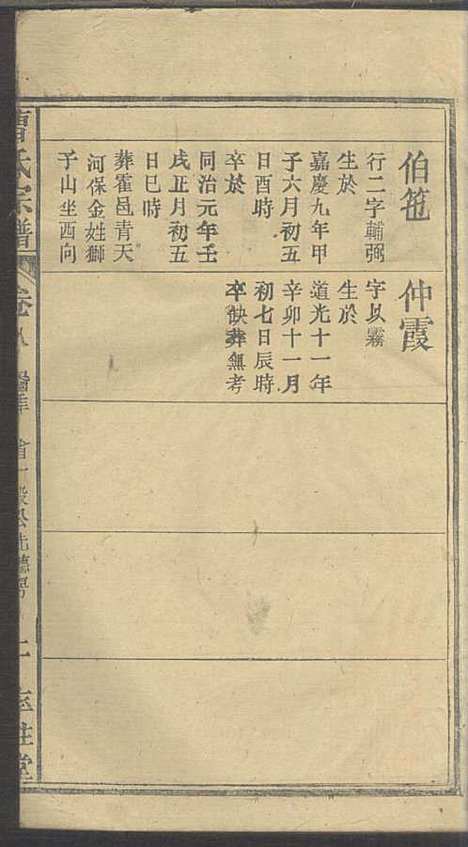 伯苞
行二字輔弼
生於
嘉慶九年甲
子六月初五
日酉時
卒於
同治元年壬
戌正月初五
日巳時
葬霍邑青天
河保金姓獅
子山坐西向
仲霞
字以霧
生於
道光十一年
辛卯十一月
初七日辰時
卒缺葬無考
曹氏宗譜
卷八